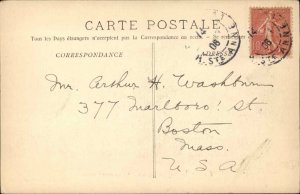 CARTE POSTALE
Tous les Pays étrangers n'acceptent pas la Correspondance au recto
CORRESPONDANCE
Mr. Arthur H. Washburn
377 Marlboro! St.
Boston
Mass.
U. S. A